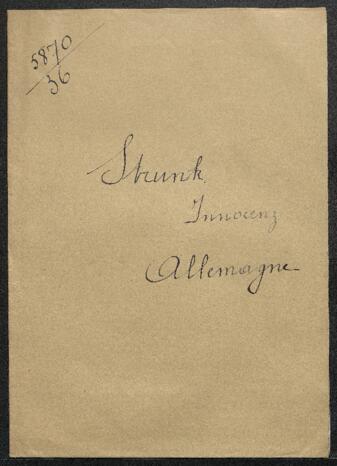 5870
36
Strunk
Innocenz
Allemagne